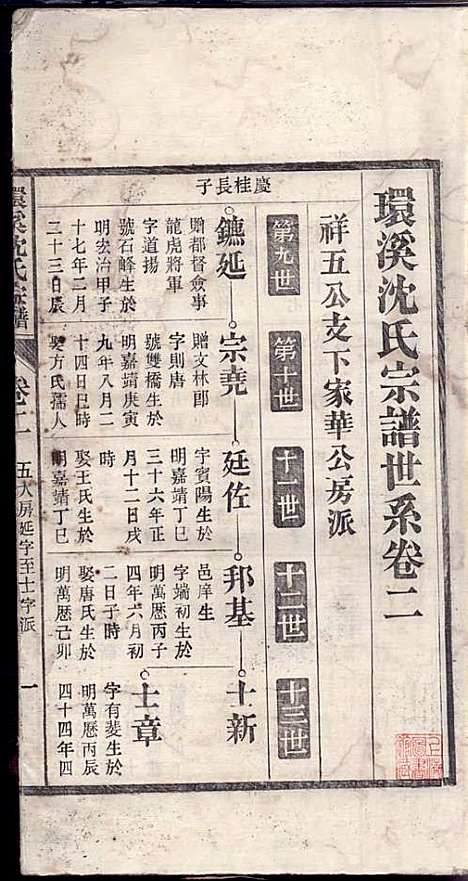 環溪沈氏宗譜世系卷二
祥五公支下家華公房派
第九世
第十世
十一世
十二世
十三世
慶桂長子
鑣延
宗堯
廷佐
邦基
士新
贈都督僉事
龍虎將軍
字道揚
號石峰生於
明宏治甲子
十七年二月
二十三日辰
贈文林郎
字則唐
號雙橋生於
明嘉靖庚寅
九年八月二
十四日巳時
娶方氏孺人
字賓陽生於
明嘉靖丁巳
三十六年正
月十二日戌
時
娶王氏生於
明嘉靖丁巳
邑庠生
字端初生於
明萬厯丙子
四年六月初
二日子時
娶唐氏生於
明萬厯己卯
士章
字有菱生於
明萬厯丙辰
四十四年四
環溪沈氏宗譜
卷二
五大房延字至士字派
一